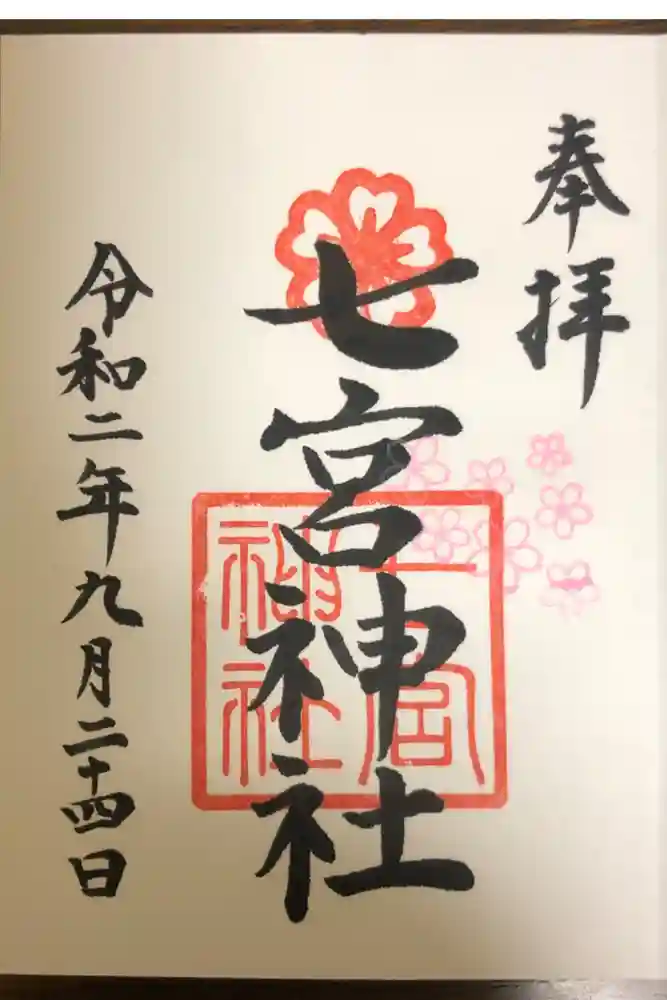 奉拝
七宮神社
七宮
神社
令和二年九月二十四日